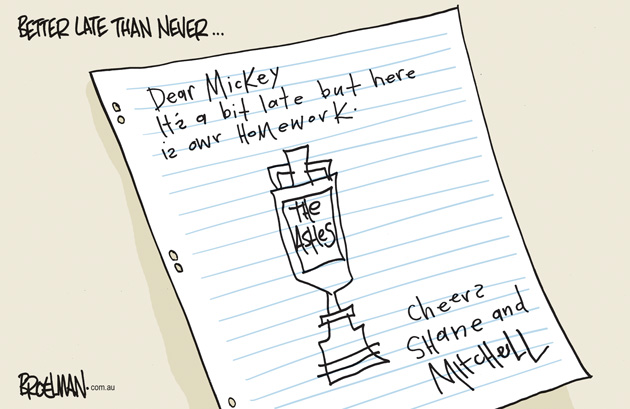 BETTER LATE THAN NEVER...
Dear Mickey
It's a bit late but here
is owr Homework.
THe
ASHeS
cheers
SHane and
MitcHeLL
BROELMAN.com.au